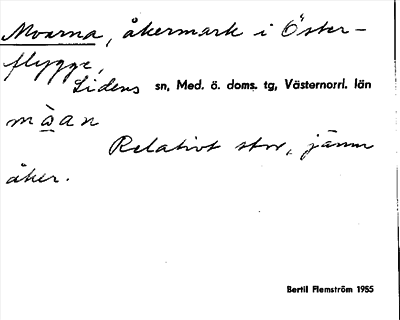 Moarna, åkermark i Öster-
flygge,
Lidens sn, Med. ö. doms. tg, Västernorrl. län
mὼan
Relativt stor, jämn
åker.
Bertil Flemström 1955